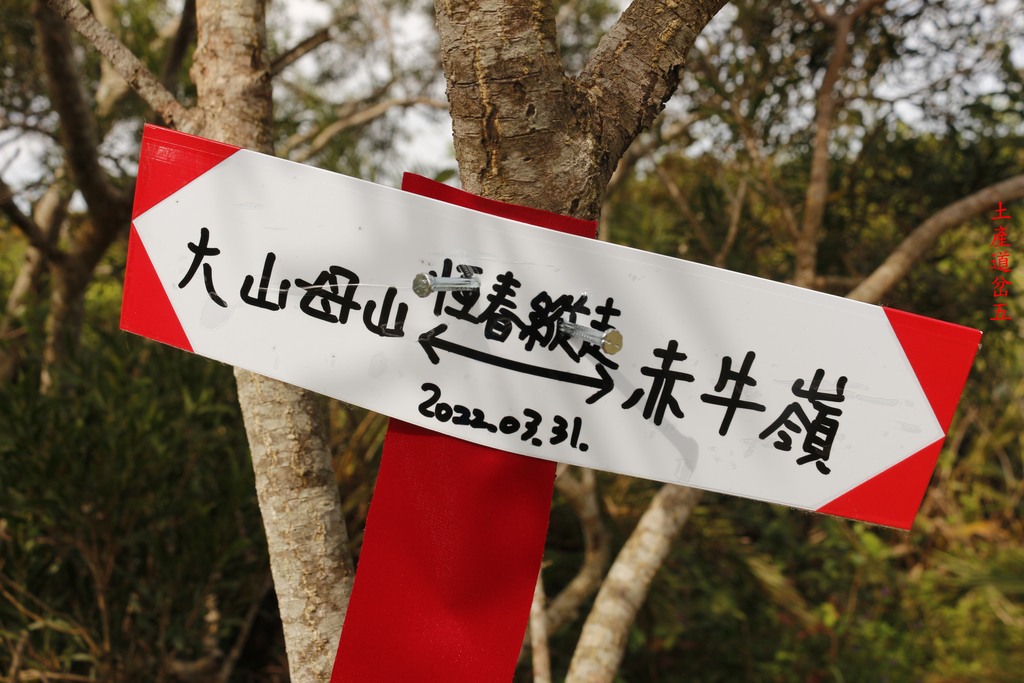 大山母山
恆春縱走
赤牛嶺
2022.03.31.
土產道岔五